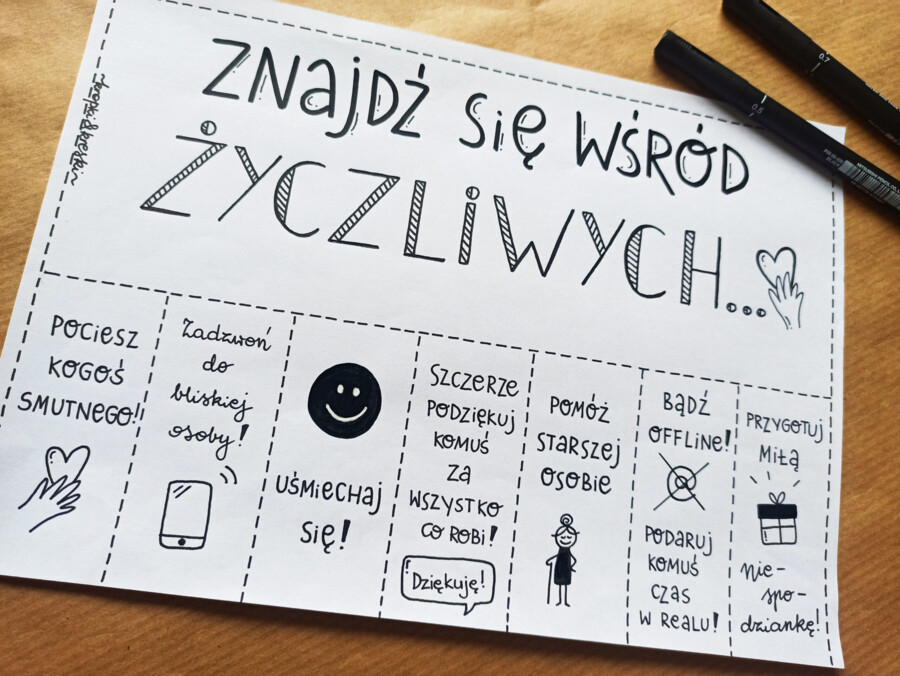 ZNAJDŹ SIĘ WŚRÓD
ŻYCZLIWYCH...
POCIESZ
KOGOŚ
SMUTNEGO!
Zadzwoń
do
bliskiej
osoby!
UŚMIECHAJ
SIĘ!
SZCZERZE
PODZIĘKUJ
KOMUŚ
ZA
WSZYSTKO
CO ROBI!
Dziękuję!
POMÓŻ
STARSZEJ
OSOBIE
BĄDŹ
OFFLINE!
PODARUJ
KOMUŚ
CZAS
W REALU!
PRZYGOTUJ
MIŁĄ
nie-
spo-
dziankę!
0.5
0.7